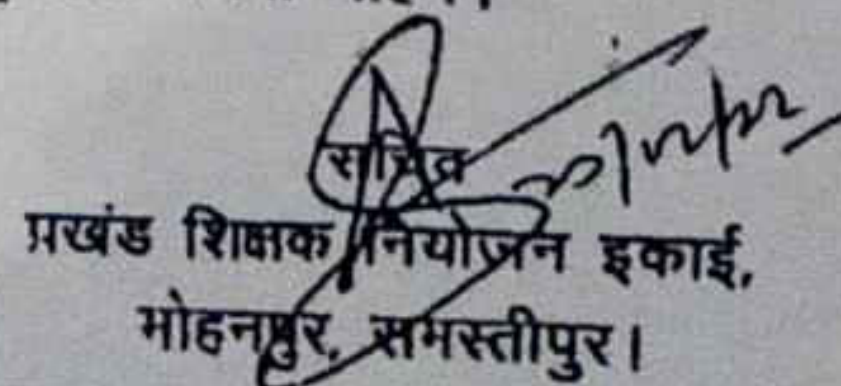 सचिव
प्रखंड शिक्षक नियोजन इकाई,
मोहनपुर, समस्तीपुर।